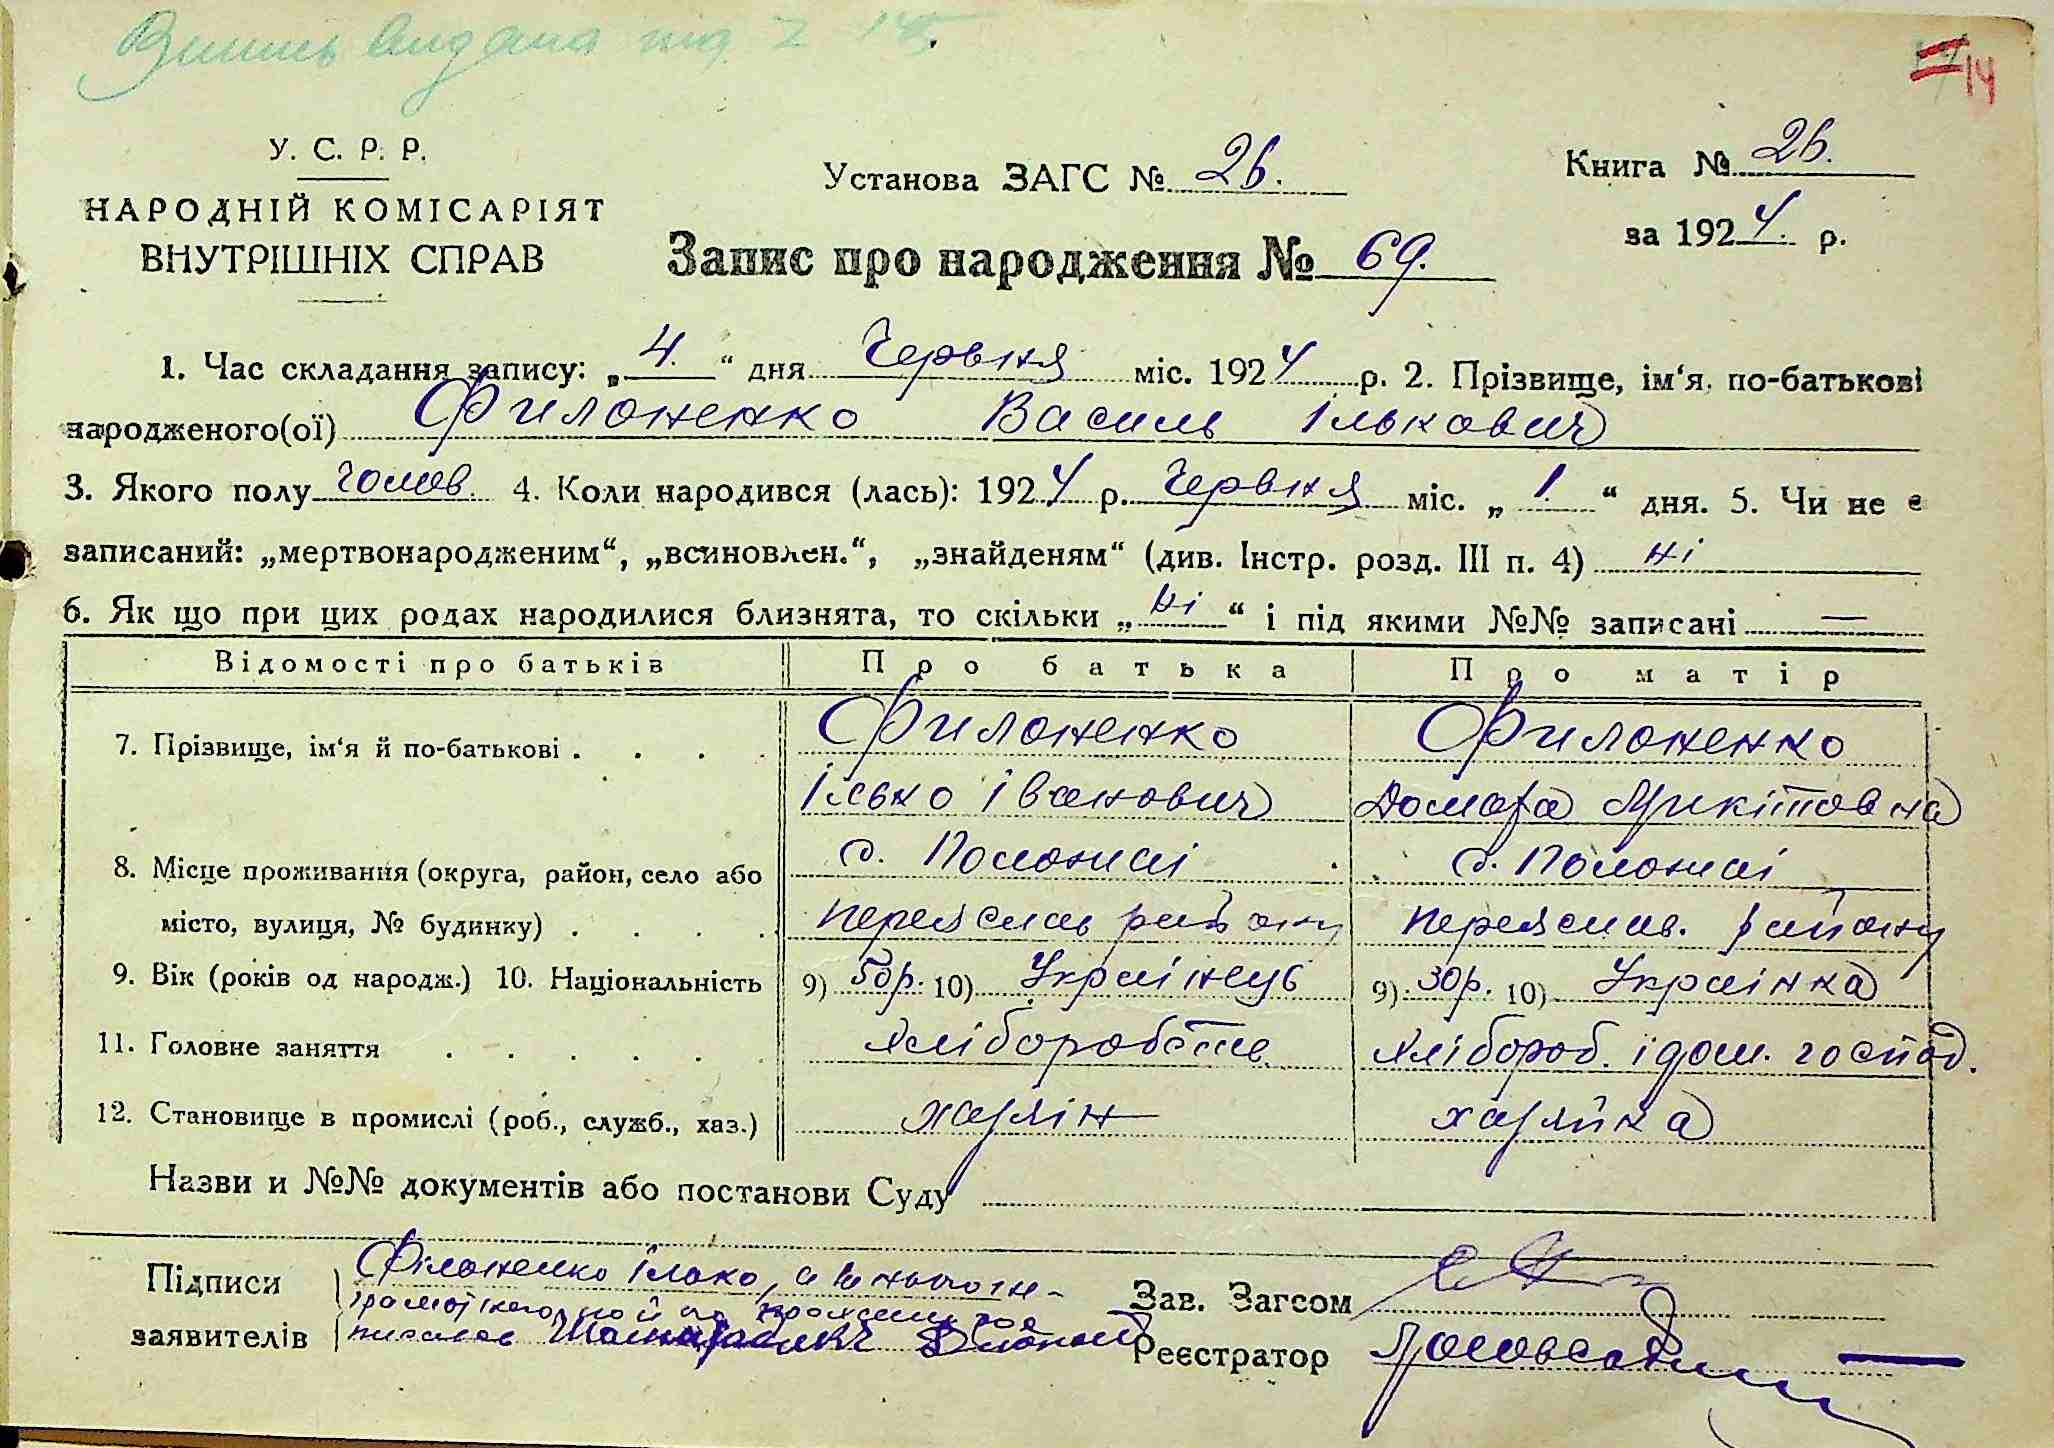 14
У. С. Р. Р.
НАРОДНІЙ КОМІСАРІЯТ
ВНУТРІШНІХ СПРАВ
Установа ЗАГС № 26.
Книга № 26.
за 1924. р.
Запис про народження № 69.
1. Час складання запису: „4.“ дня Червня міс. 1924 р. 2. Прізвище, ім‘я, по-батькові
народженого(ої) Филоненко Василь Ількович
3. Якого полу чолов. 4. Коли народився (лась): 1924 р. Червня міс. „1.“ дня. 5. Чи не є
записаний: „мертвонародженим“, „всиновлен.“, „знайденям“ (див. Інстр. розд. III п. 4) ні
6. Як що при цих родах народилися близнята, то скільки „ні“ і під якими №№ записані —
Відомості про батьків Про батька Про матір
7. Прізвище, ім‘я й по-батькові . . . . Филоненко Филоненко
Ілько Іванович Домаха Микітовна
8. Місце проживання (округа, район, село або с. Положаї с. Положаї
місто, вулиця, № будинку) . . . . Переяслав району Переяслав. району
9. Вік (років од народж.) 10. Національність 9) 50р. 10) Українець 9) 30р. 10) Українка
11. Головне заняття . . . . . Хліборобств Хлібороб. і дом. господ.
12. Становище в промислі (роб., служб., хаз.) хазяїн хазяйка
Назви и №№ документів або постанови Суду
Підписи Філоненко Ілько, а
заявителів
Зав. Загсом
Реєстратор